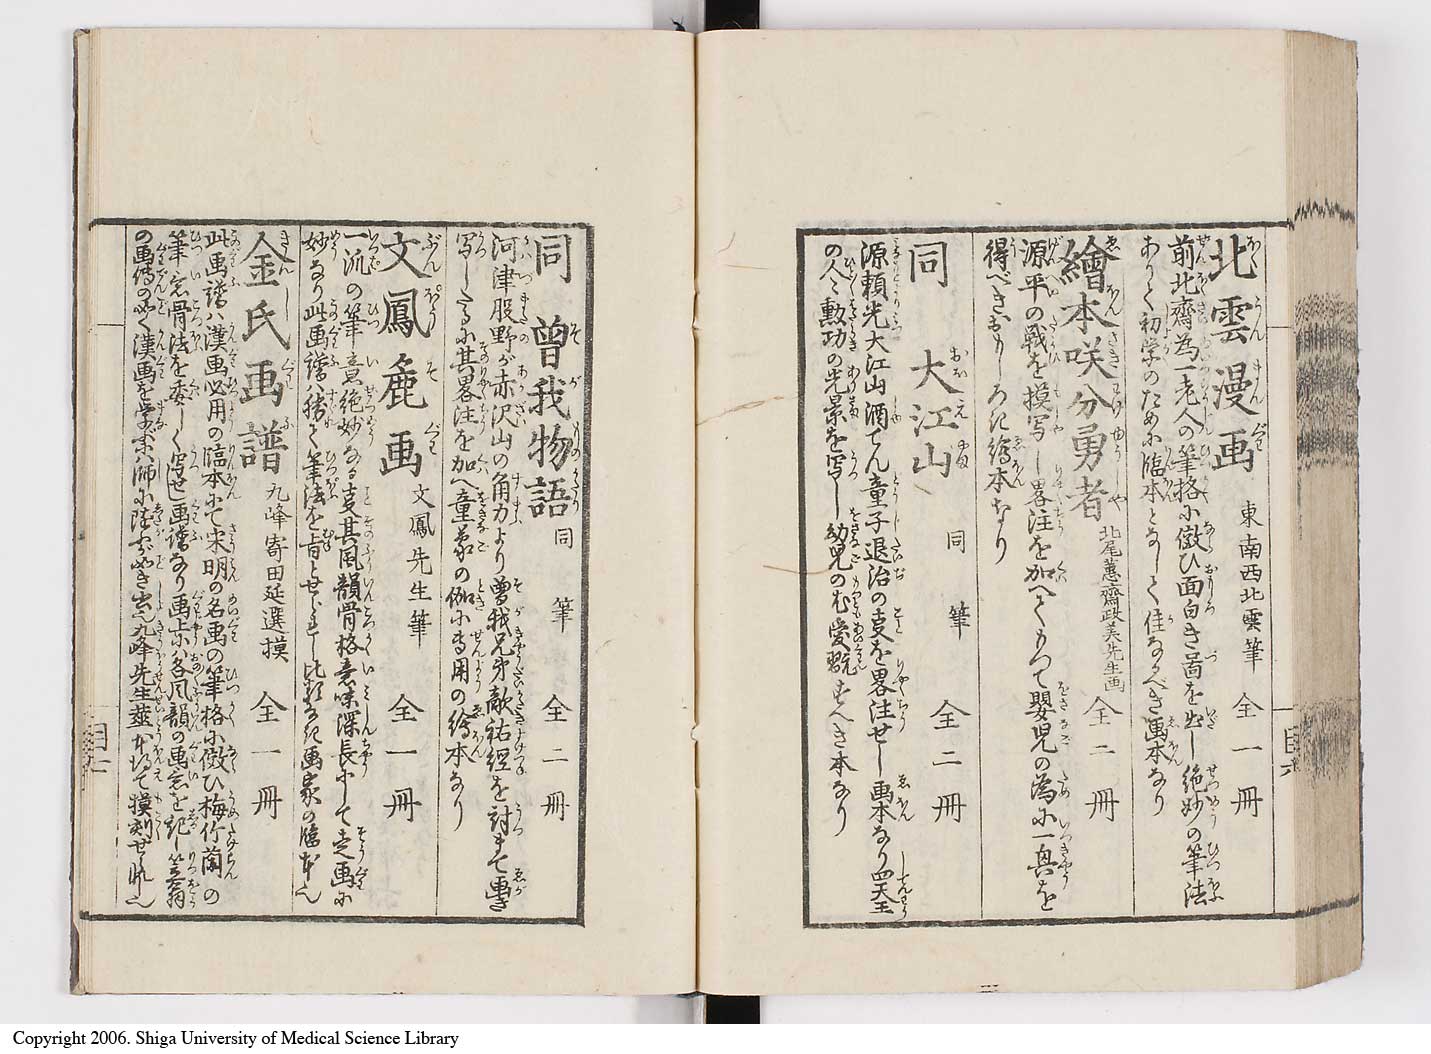 北雲漫画 東南西北雲筆 全一冊
前北齋為一老人の筆格に倣ひ面白き圖を出し絶妙の筆法
ありて初学のために臨本となして佳なるべき画本なり
繪本咲分勇者 北尾蕙齋政美先生画 全二冊
源平の戦を摸写し畧注を加へてもつて嬰児の為に一興を
得べきおもしろき繪本なり
同 大江山 同筆 全二冊
源頼光大江山酒てん童子退治の支を畧注せし画本なり四天王
の人々勲功の光景を写し幼児のもて愛翫すへき本なり
目六
同 曽我物語 同筆 全二冊
河津股野が赤沢山の角力より曽我兄弟敵祐経を討まで画き
写したるに其畧注を加へ童蒙の伽に専用の繪本なり
文鳳麁画 文鳳先生筆 全一冊
一流の筆意絶妙なる支其風韻骨格意味深長にして走画に
妙なり此画譜ハ勝て筆法を旨とせられし比類なき画家の臨本也
金氏画譜 九峰寄田延選摸 全一冊
此画譜ハ漢画必用の臨本にて宋明の名画の筆格に倣ひ梅竹蘭の
筆意骨法を委しく写せし画譜なり画毎に各風韻の画意を記し笠翁
の画傳の如く漢画を学ぶ
Copyright 2006. Shiga University of Medical Science Library